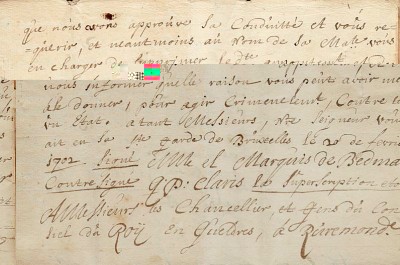 que nous vous approuve sa Conduitte et vous re
querir, et neantmoins au Nom de sa Ma.te vous
en charger de supprimer le d.te et
nous informer quelle raison vous peut avoir me
de donner, pour agir Criminelem.t, Contre
un Etat. atant Messieurs, N.re Seigneur vous
ait en sa S.te garde de Bruxelles le 20 de fevr
1702. signé El Marquis de Bedma
Contresigné G: P: Claris la Superscription
A Messieurs les Chancellier, et Gens du Con
seil du Roÿ en Gueldres, a Ruremonde.